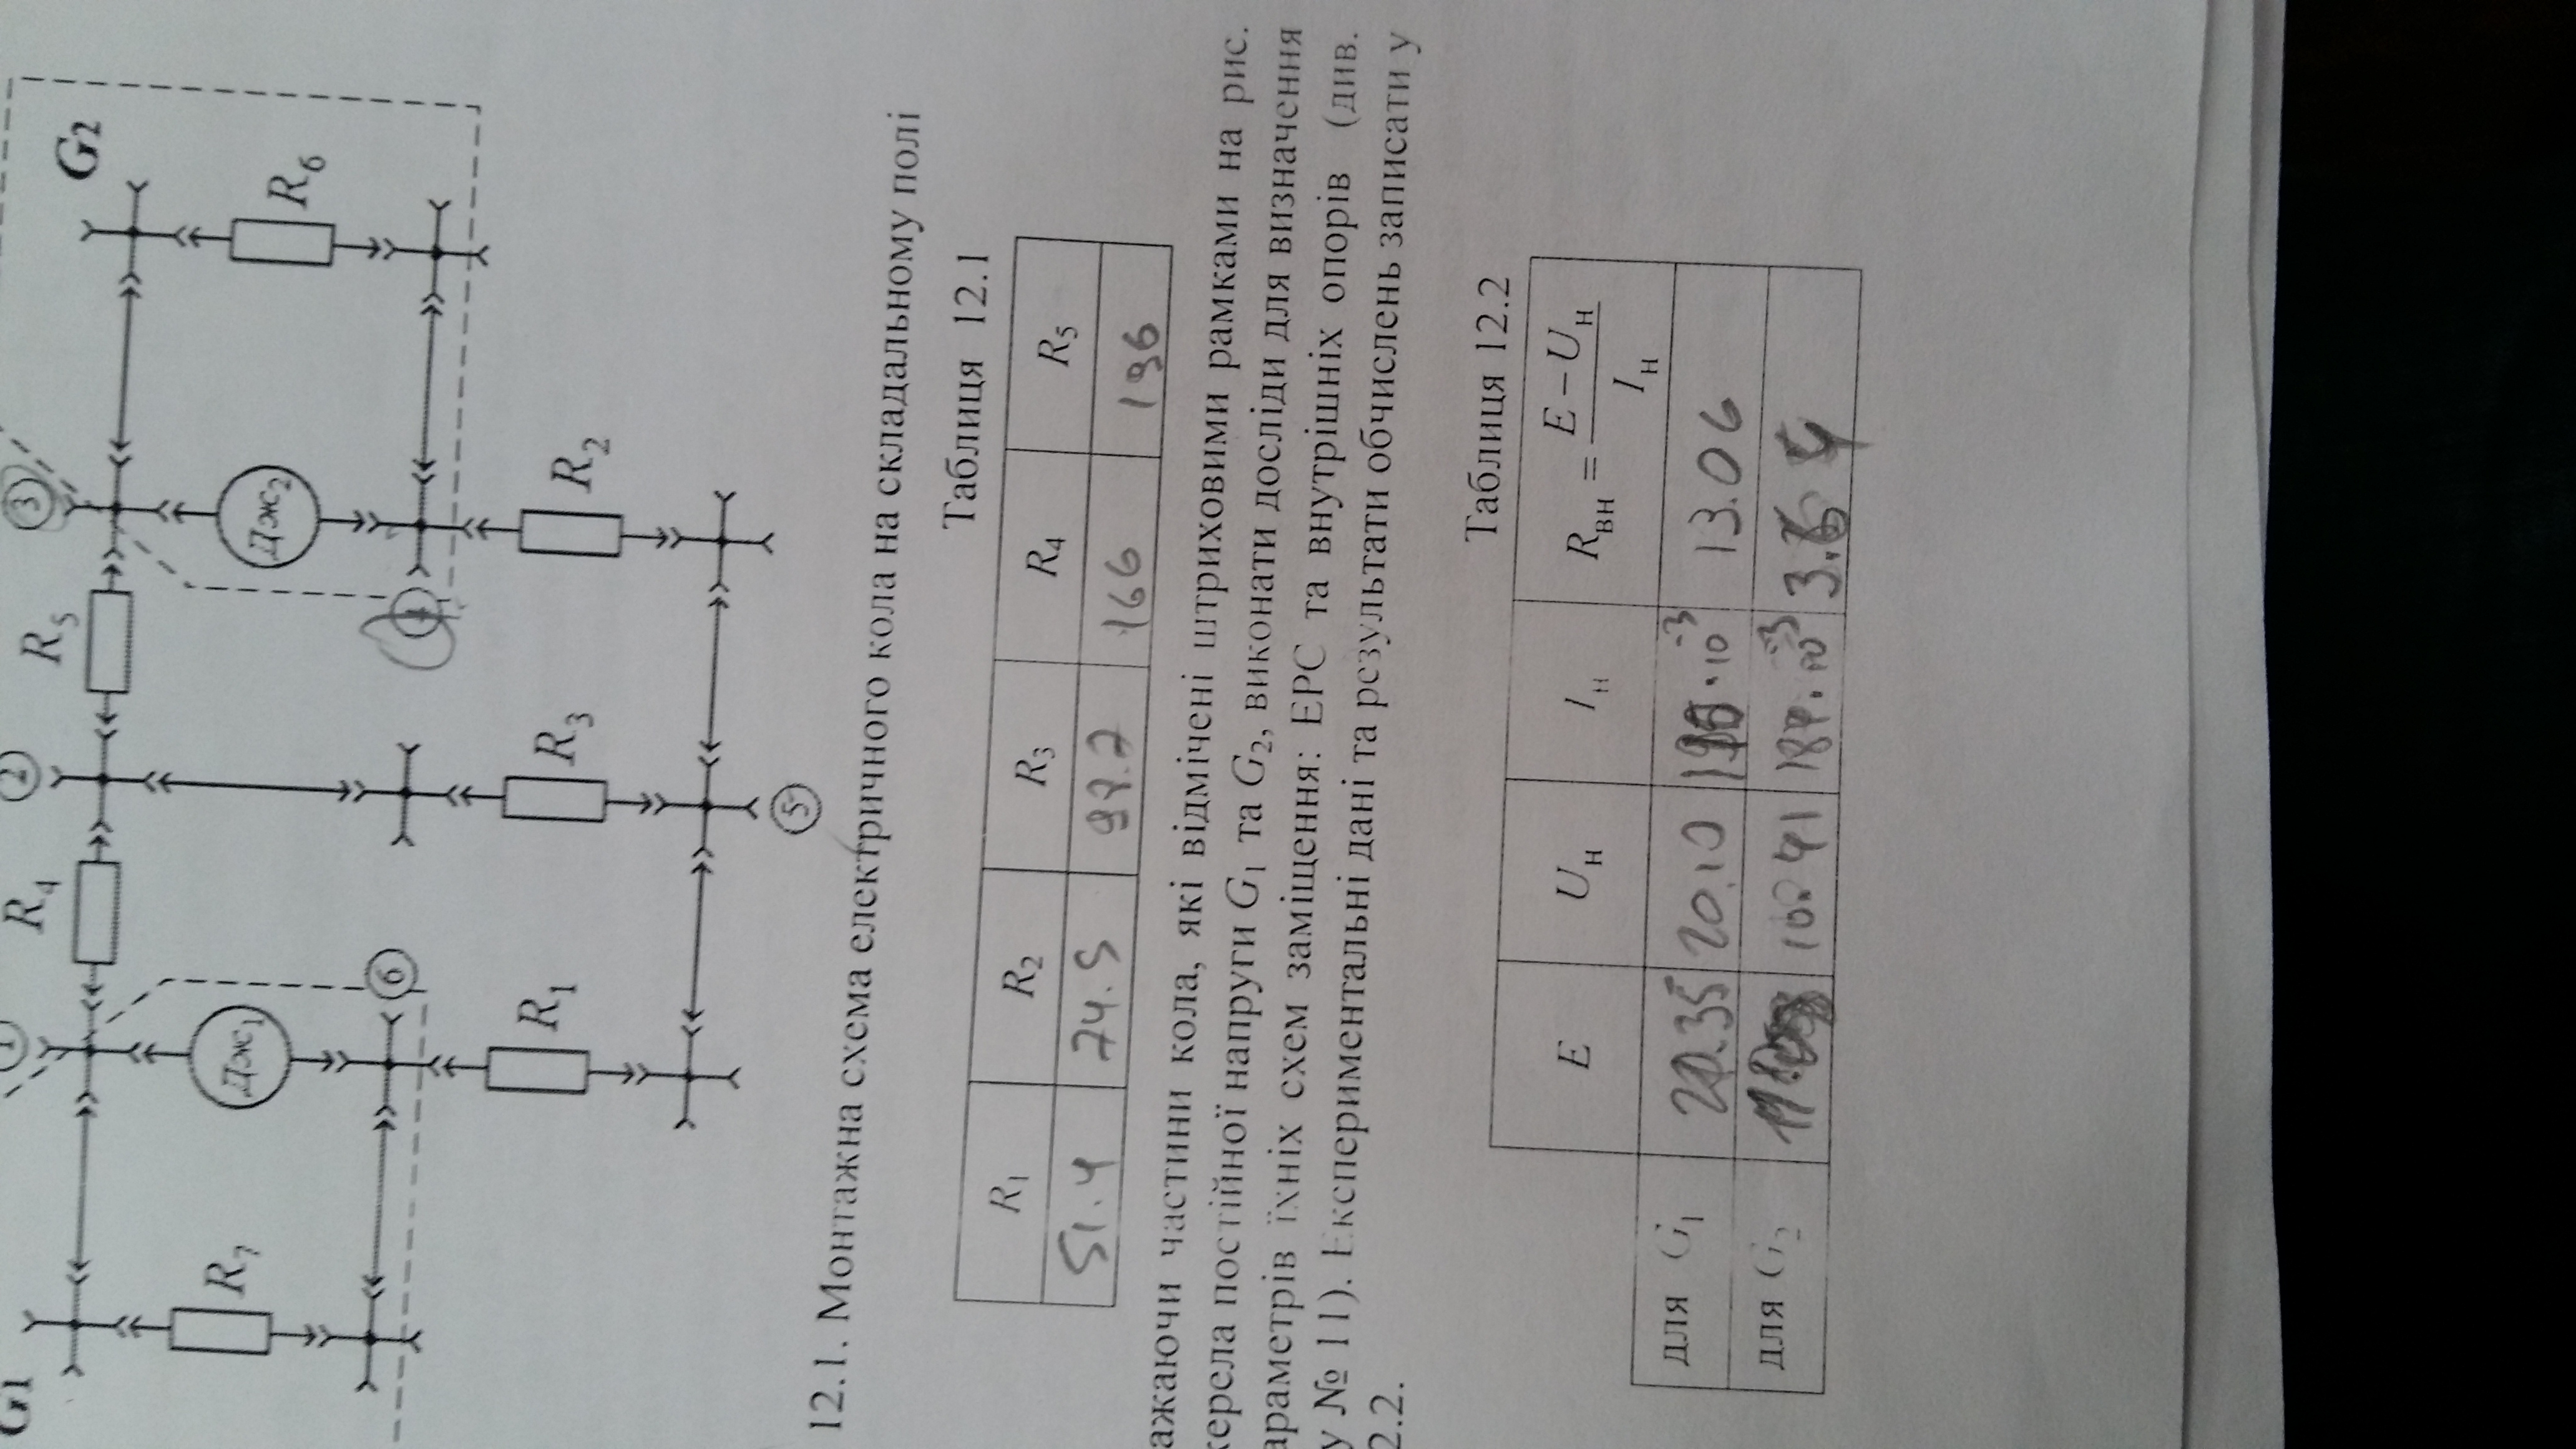 G1 1 R4 2 R5 3 G2
R7 Дж1 Дж2 R6
6
R1 R3 R2
5
12.1. Монтажна схема електричного кола на складальному полі
Таблиця 12.1
R1 R2 R3 R4 R5
51.4 74.5 166 196
ажаючи частини кола, які відмічені штриховими рамками на рис.
керела постійної напруги G1 та G2, виконати досліди для визначення
араметрів їхніх схем заміщення: ЕРС та внутрішніх опорів (див.
у № 11). Експериментальні дані та результати обчислень записати у
2.2.
Таблиця 12.2
E Uн Iн Rвн = (E – Uн) / Iн
для G1 20.10 13.06
для G2 10.41